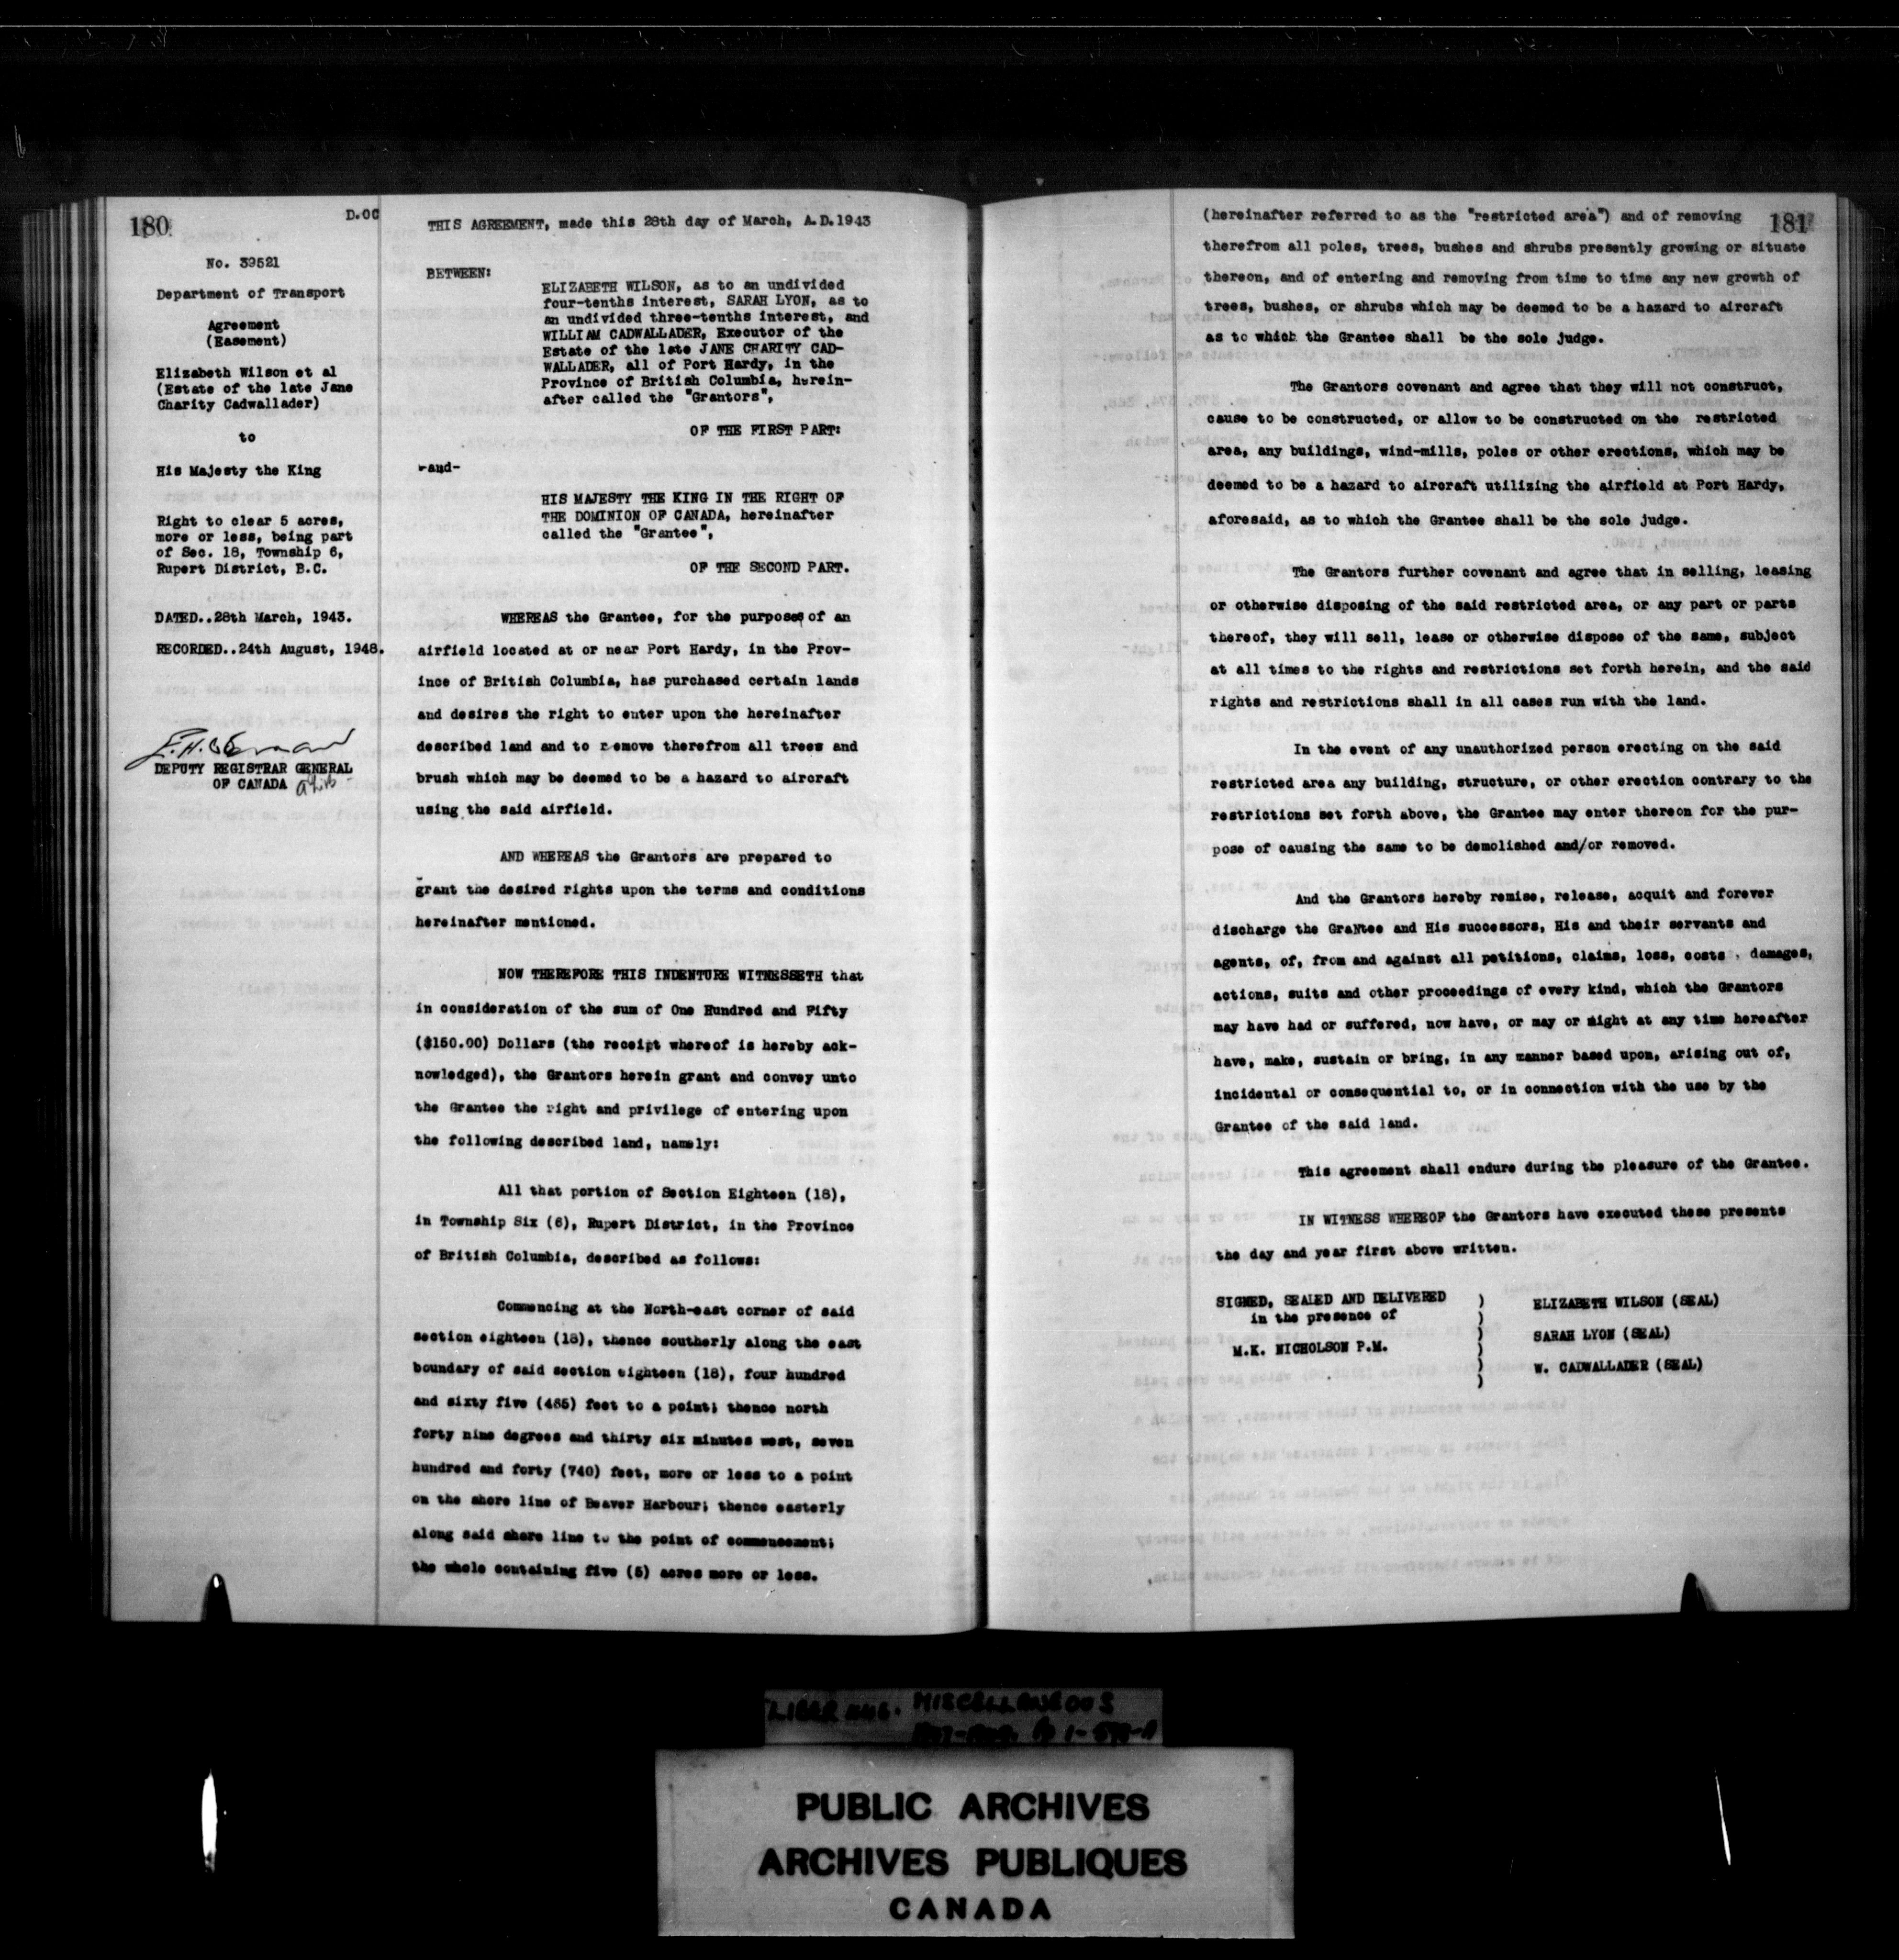 180
D.OC
No. 39521
Department of Transport
Agreement
(Easement)
Elizabeth Wilson et al
(Estate of the late Jane
Charity Cadwallader)
to
His Majesty the King
Right to clear 5 acres,
more or less, being part
of Sec. 18, Township 6,
Rupert District, B.C.
DATED..28th March, 1943.
RECORDED..24th August, 1948.
DEPUTY REGISTRAR GENERAL
OF CANADA
THIS AGREEMENT, made this 28th day of March, A.D.1943
BETWEEN:
ELIZABETH WILSON, as to an undivided
four-tenths interest, SARAH LYON, as to
an undivided three-tenths interest, and
WILLIAM CADWALLADER, Executor of the
Estate of the late JANE CHARITY CAD-
WALLADER, all of Port Hardy, in the
Province of British Columbia, herein-
after called the "Grantors",
OF THE FIRST PART:
-and-
HIS MAJESTY THE KING IN THE RIGHT OF
THE DOMINION OF CANADA, hereinafter
called the "Grantee",
OF THE SECOND PART.
WHEREAS the Grantee, for the purposes of an
airfield located at or near Port Hardy, in the Prov-
ince of British Columbia, has purchased certain lands
and desires the right to enter upon the hereinafter
described land and to remove therefrom all trees and
brush which may be deemed to be a hazard to aircraft
using the said airfield.
AND WHEREAS the Grantors are prepared to
grant the desired rights upon the terms and conditions
hereinafter mentioned.
NOW THEREFORE THIS INDENTURE WITNESSETH that
in consideration of the sum of One Hundred and Fifty
($150.00) Dollars (the receipt whereof is hereby ack-
nowledged), the Grantors herein grant and convey unto
the Grantee the right and privilege of entering upon
the following described land, namely:
All that portion of Section Eighteen (18),
in Township Six (6), Rupert District, in the Province
of British Columbia, described as follows:
Commencing at the North-east corner of said
section eighteen (18), thence southerly along the east
boundary of said section eighteen (18), four hundred
and sixty five (465) feet to a point; thence north
forty nine degrees and thirty six minutes west, seven
hundred and forty (740) feet, more or less to a point
on the shore line of Beaver Harbour; thence easterly
along said shore line to the point of commencement;
the whole containing five (5) acres more or less.
181
(hereinafter referred to as the "restricted area") and of removing
therefrom all poles, trees, bushes and shrubs presently growing or situate
thereon, and of entering and removing from time to time any new growth of
trees, bushes, or shrubs which may be deemed to be a hazard to aircraft
as to which the Grantee shall be the sole judge.
The Grantors covenant and agree that they will not construct,
cause to be constructed, or allow to be constructed on the restricted
area, any buildings, wind-mills, poles or other erections, which may be
deemed to be a hazard to aircraft utilizing the airfield at Port Hardy,
aforesaid, as to which the Grantee shall be the sole judge.
The Grantors further covenant and agree that in selling, leasing
or otherwise disposing of the said restricted area, or any part or parts
thereof, they will sell, lease or otherwise dispose of the same, subject
at all times to the rights and restrictions set forth herein, and the said
rights and restrictions shall in all cases run with the land.
In the event of any unauthorized person erecting on the said
restricted area any building, structure, or other erection contrary to the
restrictions set forth above, the Grantee may enter thereon for the pur-
pose of causing the same to be demolished and/or removed.
And the Grantors hereby remise, release, acquit and forever
discharge the GraNtee and His successors, His and their servants and
agents, of, from and against all petitions, claims, loss, costs, damages,
actions, suits and other proceedings of every kind, which the Grantors
may have had or suffered, now have, or may or might at any time hereafter
have, make, sustain or bring, in any manner based upon, arising out of,
incidental or consequential to, or in connection with the use by the
Grantee of the said land.
This agreement shall endure during the pleasure of the Grantee.
IN WITNESS WHEREOF the Grantors have executed these presents
the day and year first above written.
SIGNED, SEALED AND DELIVERED )
in the presence of )
M.K. NICHOLSON P.M. )
ELIZABETH WILSON (SEAL)
SARAH LYON (SEAL)
W. CADWALLADER (SEAL)
MISCELLANEOUS
PUBLIC ARCHIVES
ARCHIVES PUBLIQUES
CANADA